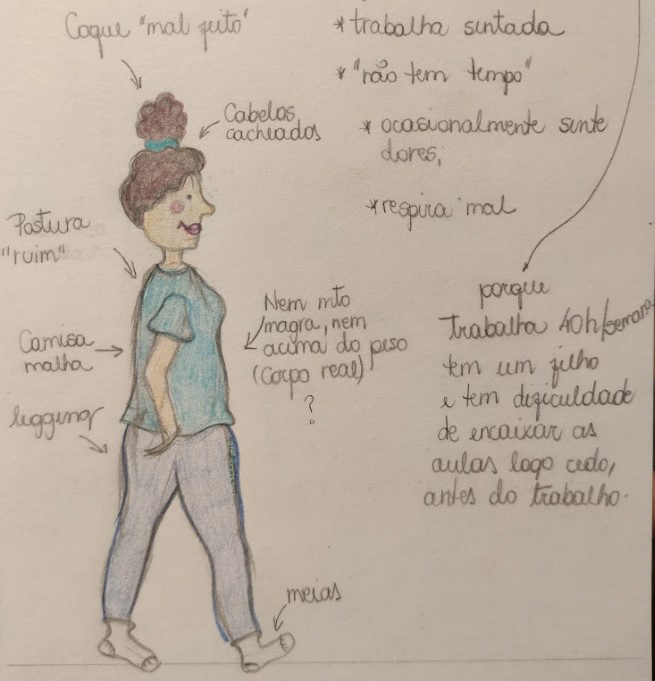 Coque "mal feito"
Cabelos
cacheados
Postura
"ruim"
Camisa
malha
legging
Nem mto
magra, nem
acima do peso
(Corpo real)
?
meias
*trabalha sentada
*"não tem tempo"
* ocasionalmente sente
dores,
*respira mal
porque
trabalha 40h/semana
tem um filho
e tem dificuldade
de encaixar as
aulas logo cedo,
antes do trabalho.